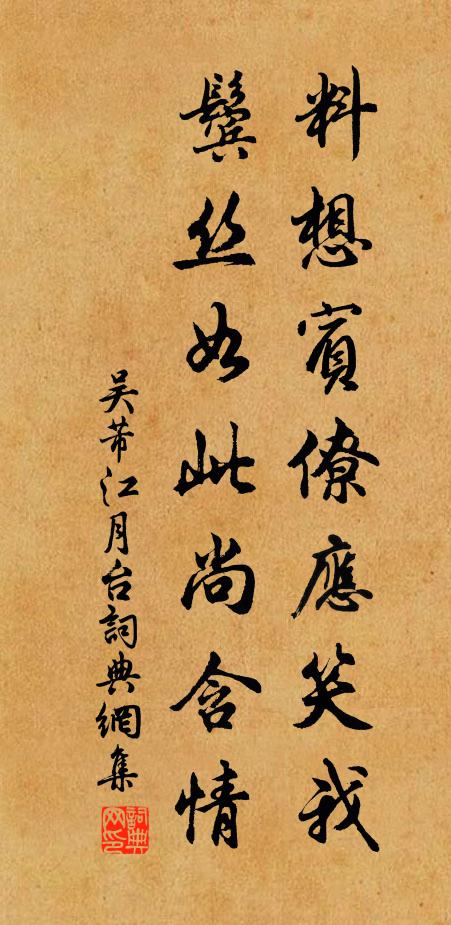 料想賓僚應笑我
鬢丝如此尚含情
吴芾江月台詞典網集
詞典網印